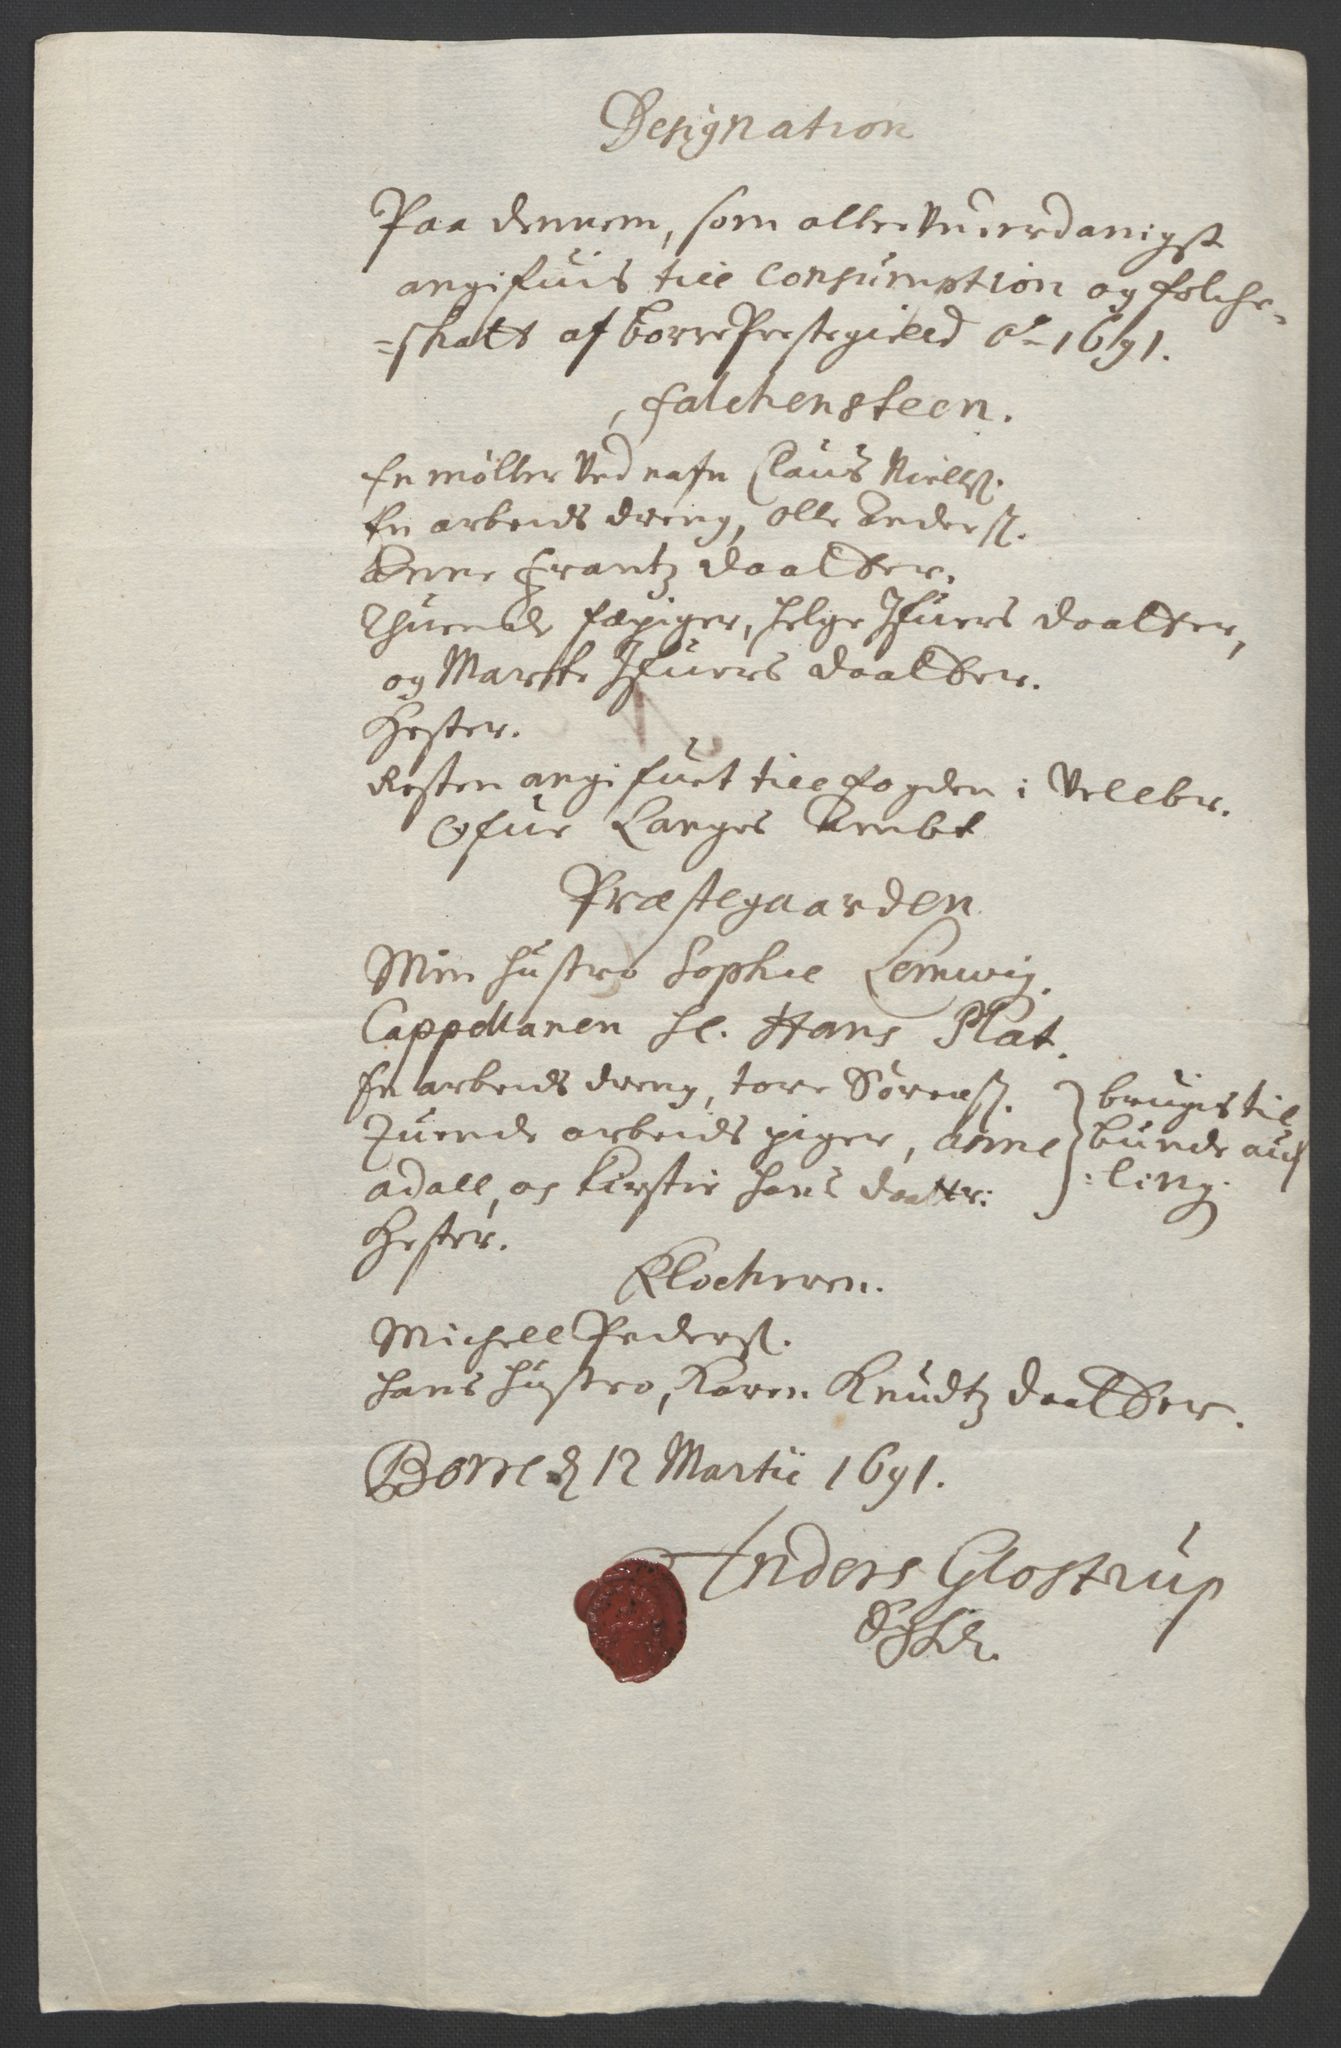 Designation
Paa dennem, som allerunderdanigst
angifuis till Consumption og folche-
=skatt af Borre Prestegield Ao 1691.
falchensteen.
En møller ved nafn Claus Nielß.
En arbeids dreng, Olle Anderß.
Anne Frantz daatter.
Thuende fæpiger, Helge Ifuers daatter,
og Marthe Ifuers daatter.
Hester.
Resten angifuet till fogden i
Ofue Langes
Præstegaarden
Min hustro Sophie Lemwig.
Cappellanen Hr. Hans Plat.
En arbeids dreng, tore Sørenß. } brugis til
Tuende arbeids piger, anne } bunde auf
adall, og Kirstie Hans daatter: } :ling.
Hester.
Klocheren.
Michell Pederß.
Hans hustro, Karen Knudtz daatter.
Borre d 12 Martii 1691.
Anders Glostrup